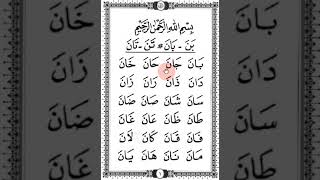 بِسْمِ اللهِ الرَّحْمٰنِ الرَّحِيْمِ
بَنَ - بَانَ # تَنَ - تَانَ
بَانَ جَانَ حَانَ خَانَ
دَانَ ذَانَ رَانَ زَانَ
سَانَ شَانَ صَانَ ضَانَ
طَانَ ظَانَ عَانَ غَانَ
فَانَ قَانَ كَانَ لَانَ
مَانَ نَانَ هَانَ يَانَ